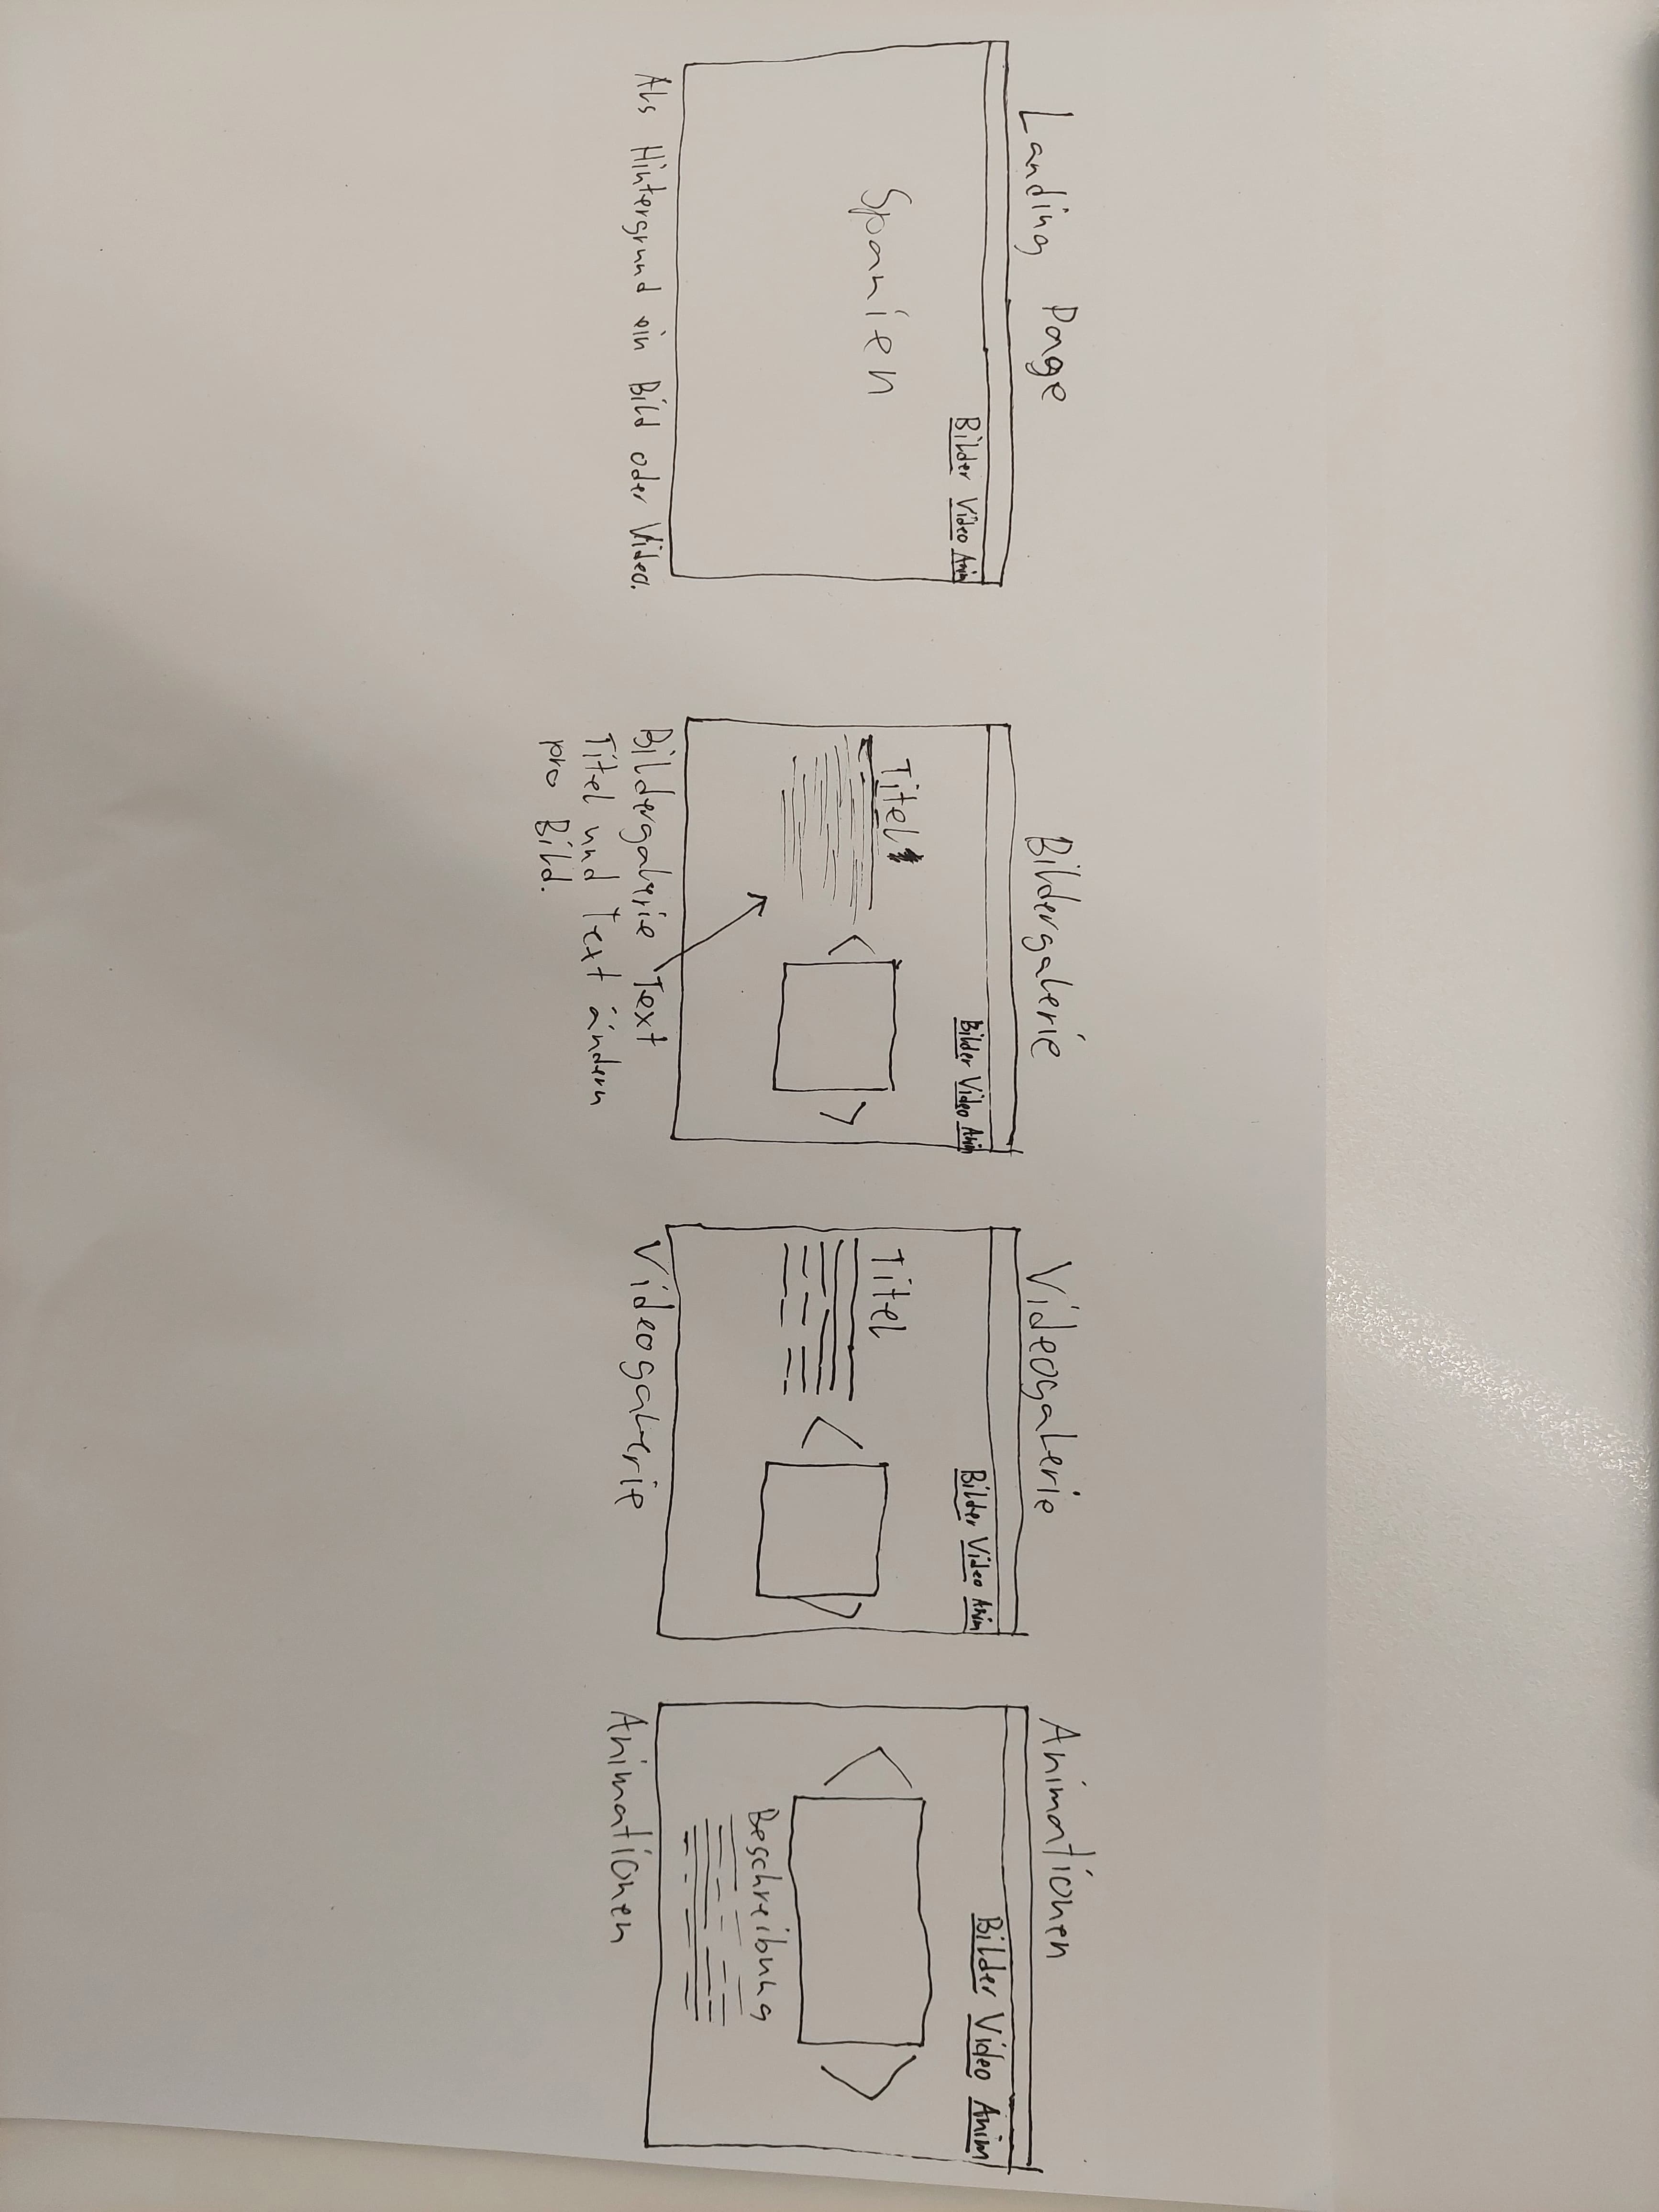 Landing Page
Bilder Video Anim
Spanien
Als Hintergrund ein Bild oder Video.
Bildergalerie
Bilder Video Anim
Titel
Text
Bildergalerie
Titel und Text ändern
pro Bild.
Videogalerie
Bilder Video Anim
Titel
Videogalerie
Animationen
Bilder Video Anim
Beschreibung
Animationen